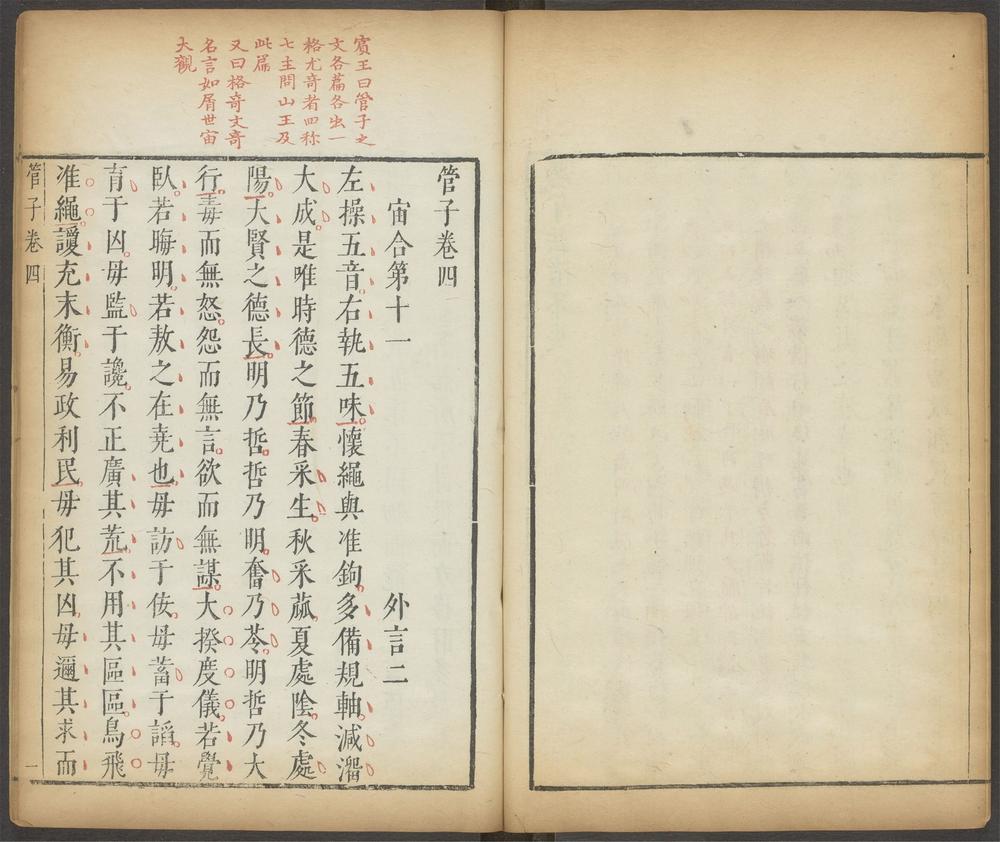 賓王曰管子之
文各篇各出一
格尤奇者四称
七主問山王及
此篇
又曰格奇文奇
名言如屑世宙
大觀
管子卷四
宙合第十一 外言二
左操五音右執五味懷繩與准鉤多備規軸減溜
大成是唯時德之節春采生秋采蓏夏處陰冬處
陽大賢之德長明乃哲哲乃明奮乃苓明哲乃大
行毒而無怒怨而無言欲而無謀大揆度儀若覺
臥若晦明若敖之在堯也毋訪于佞毋蓄于謟毋
育于凶毋監于讒不正廣其荒不用其區區鳥飛
准繩謾充末衡易政利民毋犯其凶毋邇其求而
管子卷四 一